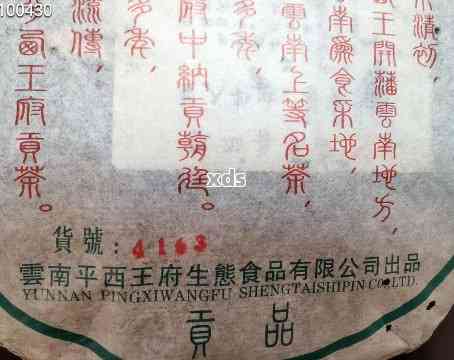 100430
清初，
王開藩雲南地方，
食采地，
雲南上等名茶，
府中納貢朝廷。
多年，
流傳，
西王府貢茶。
xds
貨號：4163
雲南平西王府生態食品有限公司出品
YUNNAN PINGXIWANGFU SHENGTAISHIPIN CO.LTD.
貢品